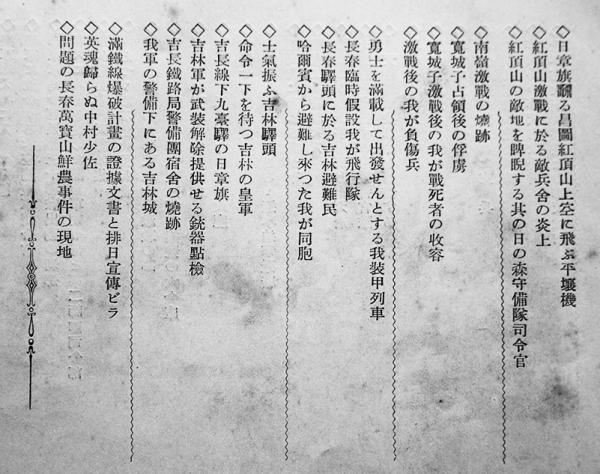 ◇日章旗飜る昌圖紅頂山上空に飛ぶ平壤機
◇紅頂山激戰に於る敵兵舍の炎上
◇紅頂山の敵地を睥睨する其の日の森守備隊司令官
◇南嶺激戰の燒跡
◇寬城子占領後の俘虜
◇寬城子激戰後の我が戰死者の收容
◇激戰後の我が負傷兵
◇勇士を滿載して出發せんとする我裝甲列車
◇長春臨時假設我が飛行隊
◇長春驛頭に於る吉林避難民
◇哈爾賓から避難し來つた我が同胞
◇士氣振ふ吉林驛頭
◇命令一下を待つ吉林の皇軍
◇吉長線下九臺驛の日章旗
◇吉林軍が武裝解除提供せる銃器點檢
◇吉長鐵路局警備團宿舍の燒跡
◇我軍の警備下にある吉林城
◇滿鐵線爆破計畫の證據文書と排日宣傳ビラ
◇英魂歸らぬ中村少佐
◇問題の長春萬寶山鮮農事件の現地